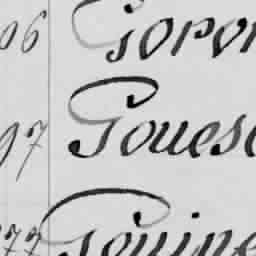 06 Goron
97 Goues
77 Gouine